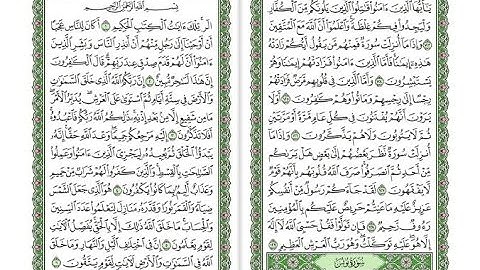 يَٰٓأَيُّهَا ٱلَّذِينَ ءَامَنُوا۟ قَٰتِلُوا۟ ٱلَّذِينَ يَلُونَكُم مِّنَ ٱلْكُفَّارِ
وَلْيَجِدُوا۟ فِيكُمْ غِلْظَةً ۚ وَٱعْلَمُوٓا۟ أَنَّ ٱللَّهَ مَعَ ٱلْمُتَّقِينَ ١٢٣
وَإِذَا مَآ أُنزِلَتْ سُورَةٌ فَمِنْهُم مَّن يَقُولُ أَيُّكُمْ زَادَتْهُ
هَٰذِهِۦٓ إِيمَٰنًا ۚ فَأَمَّا ٱلَّذِينَ ءَامَنُوا۟ فَزَادَتْهُمْ إِيمَٰنًا وَهُمْ
يَسْتَبْشِرُونَ ١٢٤ وَأَمَّا ٱلَّذِينَ فِى قُلُوبِهِم مَّرَضٌ فَزَادَتْهُمْ
رِجْسًا إِلَىٰ رِجْسِهِمْ وَمَاتُوا۟ وَهُمْ كَٰفِرُونَ ١٢٥ أَوَلَا
يَرَوْنَ أَنَّهُمْ يُفْتَنُونَ فِى كُلِّ عَامٍ مَّرَّةً أَوْ مَرَّتَيْنِ ثُمَّ
لَا يَتُوبُونَ وَلَا هُمْ يَذَّكَّرُونَ ١٢٦ وَإِذَا مَآ
أُنزِلَتْ سُورَةٌ نَّظَرَ بَعْضُهُمْ إِلَىٰ بَعْضٍ هَلْ يَرَىٰكُم
مِّنْ أَحَدٍ ثُمَّ ٱنصَرَفُوا۟ ۚ صَرَفَ ٱللَّهُ قُلُوبَهُم بِأَنَّهُمْ قَوْمٌ
لَّا يَفْقَهُونَ ١٢٧ لَقَدْ جَآءَكُمْ رَسُولٌ مِّنْ أَنفُسِكُمْ
عَزِيزٌ عَلَيْهِ مَا عَنِتُّمْ حَرِيصٌ عَلَيْكُم بِٱلْمُؤْمِنِينَ
رَءُوفٌ رَّحِيمٌ ١٢٨ فَإِن تَوَلَّوْا۟ فَقُلْ حَسْبِىَ ٱللَّهُ لَآ إِلَٰهَ
إِلَّا هُوَ ۖ عَلَيْهِ تَوَكَّلْتُ ۖ وَهُوَ رَبُّ ٱلْعَرْشِ ٱلْعَظِيمِ ١٢٩
سُورَةُ يُونُسَ
بِسْمِ ٱللَّهِ ٱلرَّحْمَٰنِ ٱلرَّحِيمِ
الٓر ۚ تِلْكَ ءَايَٰتُ ٱلْكِتَٰبِ ٱلْحَكِيمِ ١ أَكَانَ لِلنَّاسِ عَجَبًا
أَنْ أَوْحَيْنَآ إِلَىٰ رَجُلٍ مِّنْهُمْ أَنْ أَنذِرِ ٱلنَّاسَ وَبَشِّرِ ٱلَّذِينَ
ءَامَنُوٓا۟ أَنَّ لَهُمْ قَدَمَ صِدْقٍ عِندَ رَبِّهِمْ ۗ قَالَ ٱلْكَٰفِرُونَ
إِنَّ هَٰذَا لَسَٰحِرٌ مُّبِينٌ ٢ إِنَّ رَبَّكُمُ ٱللَّهُ ٱلَّذِى خَلَقَ ٱلسَّمَٰوَٰتِ
وَٱلْأَرْضَ فِى سِتَّةِ أَيَّامٍ ثُمَّ ٱسْتَوَىٰ عَلَى ٱلْعَرْشِ ۖ يُدَبِّرُ ٱلْأَمْرَ ۖ
مَا مِن شَفِيعٍ إِلَّا مِنۢ بَعْدِ إِذْنِهِۦ ۚ ذَٰلِكُمُ ٱللَّهُ رَبُّكُمْ فَٱعْبُدُوهُ ۚ
أَفَلَا تَذَكَّرُونَ ٣ إِلَيْهِ مَرْجِعُكُمْ جَمِيعًا ۖ وَعْدَ ٱللَّهِ حَقًّا ۚ إِنَّهُۥ
يَبْدَؤُا۟ ٱلْخَلْقَ ثُمَّ يُعِيدُهُۥ لِيَجْزِىَ ٱلَّذِينَ ءَامَنُوا۟ وَعَمِلُوا۟
ٱلصَّٰلِحَٰتِ بِٱلْقِسْطِ ۚ وَٱلَّذِينَ كَفَرُوا۟ لَهُمْ شَرَابٌ مِّنْ حَمِيمٍ
وَعَذَابٌ أَلِيمٌۢ بِمَا كَانُوا۟ يَكْفُرُونَ ٤ هُوَ ٱلَّذِى جَعَلَ ٱلشَّمْسَ
ضِيَآءً وَٱلْقَمَرَ نُورًا وَقَدَّرَهُۥ مَنَازِلَ لِتَعْلَمُوا۟ عَدَدَ ٱلسِّنِينَ
وَٱلْحِسَابَ ۚ مَا خَلَقَ ٱللَّهُ ذَٰلِكَ إِلَّا بِٱلْحَقِّ ۚ يُفَصِّلُ ٱلْءَايَٰتِ
لِقَوْمٍ يَعْلَمُونَ ٥ إِنَّ فِى ٱخْتِلَٰفِ ٱلَّيْلِ وَٱلنَّهَارِ وَمَا خَلَقَ
ٱللَّهُ فِى ٱلسَّمَٰوَٰتِ وَٱلْأَرْضِ لَءَايَٰتٍ لِّقَوْمٍ يَتَّقُونَ ٦